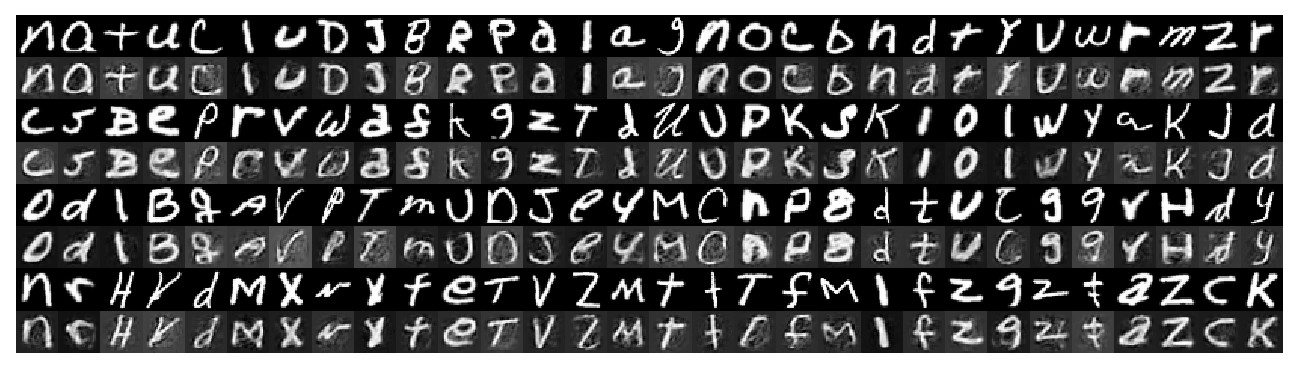 n a t u C l u D J B R P a l a g n o c b n d t Y U w r m z r
n a t u C l u D J B R P a l a g n o c b n d t Y U w r m z r
c 5 B e P r v w a f k 9 z T d U U P K S K 1 0 1 w y a K J d
c 5 B e P r v w a f k 9 z T d U U P K S K 1 0 1 w y a K J d
0 d l B g A V P T m U D J e y M C n P 8 d t U C g 9 r H d y
0 d l B g A V P T m U D J e y M O n P 8 d t U C g 9 r H d y
n r H Y d M X r Y f e T V Z M t t T f M l f z 9 z t a Z C K
n r H Y d M X r Y f e T V Z M t t f M l f z 9 z t a Z C K